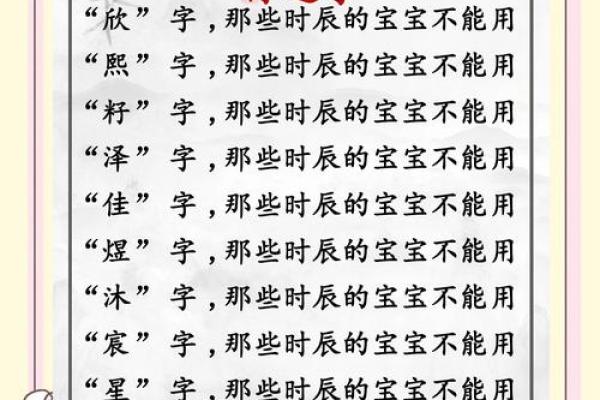 “欣”字，那些时辰的宝宝不能用
“熙”字，那些时辰的宝宝不能用
“籽”字，那些时辰的宝宝不能用
“泽”字，那些时辰的宝宝不能用
“佳”字，那些时辰的宝宝不能用
“煜”字，那些时辰的宝宝不能用
“沐”字，那些时辰的宝宝不能用
“宸”字，那些时辰的宝宝不能用
“星”字，那些时辰的宝宝不能用